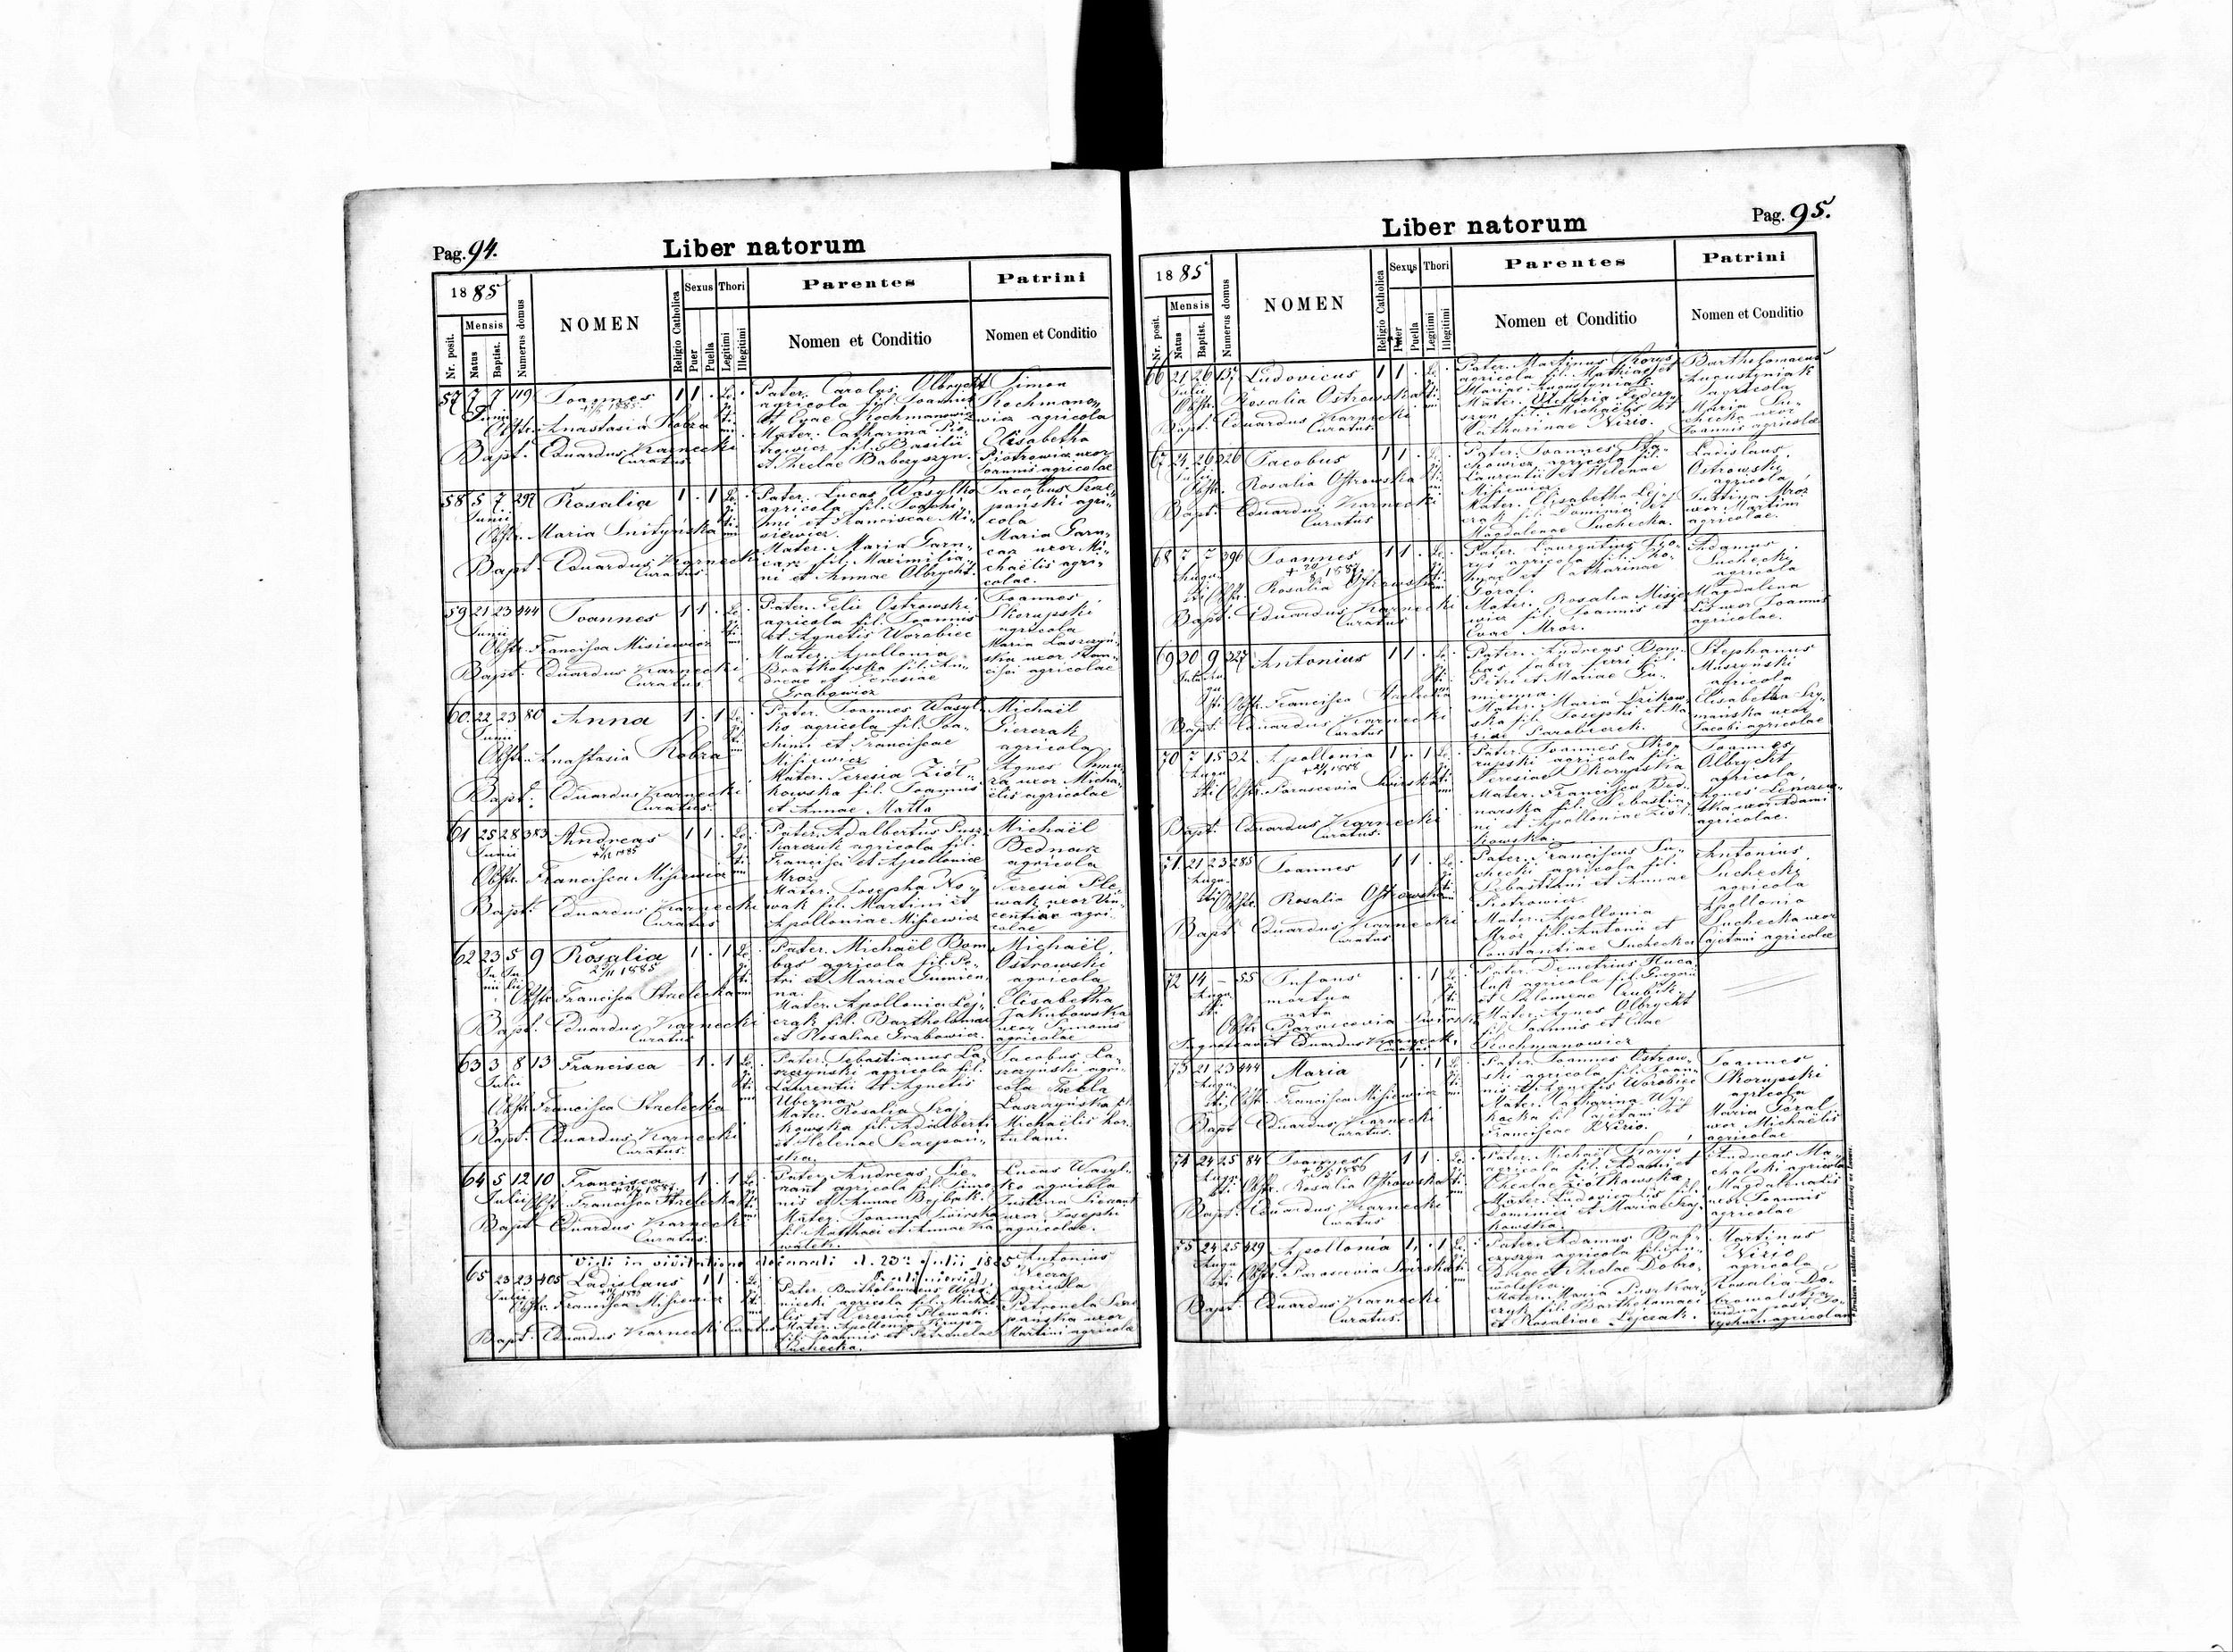 Pag. 94.
Liber natorum
1885
Nr. posit.
Mensis
Natus
Baptist.
Numerus domus
NOMEN
Religio Catholica
Sexus
Puer
Puella
Thori
Legitimi
Illegitimi
Parentes
Nomen et Conditio
Patrini
Nomen et Conditio
57 7 7 119 Joannes 1 1
Junii
Obstr. Anastasia Kobza
Bapt. Eduardus Karnecki
Curatus.
Pater. Carolus Olbrycht
agricola fil. Joannis
et Evae Kochmanowicz
Mater. Catharina Pio-
trowicz fil. Basilii
et Theclae Babczyszyn.
Simon
Kochmano-
wicz agricola
Elisabetha
Piotrowicz uxor
Joannis agricolae
58 5 7 297 Rosalia 1 . 1
Junii
Obstr. Maria Snityńska
Bapt. Eduardus Karnecki
Curatus.
Pater. Lucas Wasylko
agricola fil. Joachi-
mi et Franciscae Mi-
siewicz.
Mater. Maria Garn-
carz fil. Maximilia-
ni et Annae Olbrycht.
Jacobus Szcze-
pański agri-
cola
Maria Garn-
carz uxor Mi-
chaëlis agri-
colae.
59 21 23 444 Joannes 1 1 .
Junii
Obstr. Francisca Misiewicz
Bapt. Eduardus Karnecki
Curatus.
Pater. Felix Ostrowski
agricola fil. Joannis
et Agnetis Worobiec
Mater. Apollonia
Bratkowska fil. An-
dreae et Teresiae
Grabowicz
Joannes
Skorupski
agricola
Maria Laszczyń-
ska uxor Fran-
cisci agricolae
60 22 23 80 Anna 1 . 1
Junii
Obstr. Anastasia Kobza
Bapt. Eduardus Karnecki
Curatus.
Pater. Joannes Wasyl-
ko agricola fil. Joa-
chimi et Franciscae
Misiewicz
Mater. Teresia Ziół-
kowska fil. Joannis
et Annae Matla
Michaël
agricola
Agnes Chmu-
ra uxor Micha-
ëlis agricolae
61 25 28 383 Andreas 1 1 .
Junii
Obstr. Francisca Misiewicz
Bapt. Eduardus Karnecki
Curatus
Pater. Adalbertus Pusz-
karczuk agricola fil.
Francisci et Apolloniae
Mroz
Mater. Josepha No-
wak fil. Martini et
Apolloniae Misiewicz
Michaël
Bednarz
agricola
Teresia Ple-
wak uxor Vin-
centiae agri-
colae
62 23 5 9 Rosalia 1 . 1
Obstr. Francisca Strzelecka
Bapt. Eduardus Karnecki
Curatus
Pater. Michaël Bom-
bas agricola fil. Pe-
tri et Mariae Gumien-
na.
Mater. Apollonia Lej-
czak fil. Bartholomaei
et Rosaliae Grabowicz.
Michaël
Ostrowski
agricola
Elisabetha
Jakubowska
uxor Symonis
agricolae
63 3 8 13 Francisca 1 . 1
Julii
Obstr. Francisca Strzelecka
Bapt. Eduardus Karnecki
Curatus.
Pater. Sebastianus La-
szczyński agricola fil.
Laurentii et Agnetis
Uberna.
Mater. Rosalia Szaj-
kowska fil. Adalberti
et Helenae Szczepań-
ska.
Jacobus La-
szczyński agri-
cola Thecla
Laszczyńska fil.
Michaëlis hor-
tulani.
64 5 12 10 Francisca 1 . 1
Julii Obstr. Francisca Strzelecka
Bapt. Eduardus Karnecki
Curatus.
Pater. Andreas Sie-
rant agricola fil. Simo-
nis et Annae Bejbak.
Mater. Joanna Swirska
fil. Matthaei et Annae Ka-
walek.
Lucas Wasyl-
ko agricola
Justina Sierant
uxor Josephi
agricolae.
Vidi in visitatione decanali d. 23a Julii 1885
65 23 23 405 Ladislaus 1 1 .
Julii
Obstr. Francisca Misiewicz
Bapt. Eduardus Karnecki Curatus
Pater. Bartholomaeus
agricola fil. Michaë-
lis et Teresiae Plewak
Mater. Apollonia
fil. Joannis et Petronelae
Suchecka.
Antonius
agricola
Petronela Szcze-
pańska uxor
Martini agricolae
Pag. 95.
Liber natorum
1885
Nr. posit.
Mensis
Natus
Baptist.
Numerus domus
NOMEN
Religio Catholica
Sexus
Puer
Puella
Thori
Legitimi
Illegitimi
Parentes
Nomen et Conditio
Patrini
Nomen et Conditio
66 21 26 137 Ludovicus 1 1 .
Julii
Obstr. Rosalia Ostrowska
Bapt. Eduardus Karnecki
Curatus.
Pater. Martinus Skorys
agricola fil. Mathiae et
Mariae Augustyniak.
Mater. Victoria Fedczy-
szyn fil. Michaëlis et
Catharinae Nizio.
Bartholomaeus
Augustyniak
agricola
Maria Su-
checka uxor
Joannis agricolae
67 24 26 326 Jacobus 1 1 .
Julii
Obstr. Rosalia Ostrowska
Bapt. Eduardus Karnecki
Curatus
Pater. Joannes Sta-
chowicz agricola fil.
Laurentii et Helenae
Misiewicz.
Mater. Elisabetha Lej-
czak fil. Dominici et
Magdalenae Suchecka.
Ladislaus
Ostrowski
agricola
Justina Mroz
uxor Martini
agricolae.
68 7 7 396 Joannes 1 1 .
Augusti
Obstr. Rosalia Ostrowska
Bapt. Eduardus Karnecki
Curatus
Pater. Laurentius Sko-
rys agricola fil. Tho-
mae et Catharinae
Goral.
Mater. Rosalia Misie-
wicz fil. Joannis et
Evae Mroz.
Adamus
Suchecki
agricola
Magdalena
Lis uxor Joannis
agricolae.
69 30 9 327 Antonius 1 1 .
Obstr. Francisca Strzelecka
Bapt. Eduardus Karnecki
Curatus
Pater. Andreas Bom-
bas faber ferri fil.
Petri et Mariae Gu-
mienna.
Mater. Maria Dzikow-
ska fil. Josephi et Ma-
riae Parobczek.
Stephanus
Muszyński
agricola
Elisabetha Szy-
mańska uxor
Jacobi agricolae
70 7 15 32 Apollonia 1 . 1
Augusti
Obstr. Parascevia Swirska
Bapt. Eduardus Karnecki
Curatus.
Pater. Joannes Sko-
rupski agricola fil.
Teresiae Skorupska
Mater. Francisca Bed-
narska fil. Sebastia-
ni et Apolloniae Ziół-
kowska.
Joannes
Olbrycht
agricola,
Agnes
uxor Adami
agricolae.
71 21 23 285 Joannes 1 1 .
Augusti
Obstr. Rosalia Ostrowska
Bapt. Eduardus Karnecki
Curatus
Pater. Franciscus Su-
checki agricola fil.
Sebastiani et Annae
Piotrowicz.
Mater. Apollonia
Mróz fil. Antonii et
Constantiae Suchecka
Antonius
Suchecki
agricola
Apollonia
Suchecka uxor
Cajetani agricolae
72 14 - 55 Infans . . 1
Augusti
mortua
nata
Obstr. Parascevia Swirska
Ingrossavit Eduardus Karnecki
Curatus
Pater. Demetrius Huca-
luk agricola fil. Gregorii
et Salomeae
Mater. Agnes Olbrycht
fil. Joannis et Evae
Kochmanowicz
73 21 23 444 Maria 1 . 1
Augusti
Obstr. Francisca Misiewicz
Bapt. Eduardus Karnecki
Curatus.
Pater. Joannes Ostrow-
ski agricola fil. Joan-
nis et Agnetis Worobiec
Mater. Catharina Wy-
socka fil. Cajetani et
Franciscae Nizio.
Joannes
Skorupski
agricola
Maria Goral
uxor Michaëlis
agricolae
74 24 25 84 Joannes 1 1 .
Augusti
Obstr. Rosalia Ostrowska
Bapt. Eduardus Karnecki
Curatus
Pater. Michaël Skorys
agricola fil. Adami et
Theclae Ziółkowska
Mater. Ludovica Lis fil.
Dominici et Mariae Szaj-
kowska.
Andreas Ma-
chalski agricola
Magdalena Lis
uxor Joannis
agricolae
75 24 25 429 Apollonia 1 . 1
Augusti
Obstr. Parascevia Swirska
Bapt. Eduardus Karnecki
Curatus.
Pater. Adamus Bab-
czyszyn agricola fil. An-
dreae et Theclae Dobro-
wolska.
Mater. Maria Puszkar-
czyk fil. Bartholomaei
et Rosaliae Lejczak.
Martinus
Nizio
agricola
Rosalia Do-
browolska
vidua post Jo-
sephum agricolam